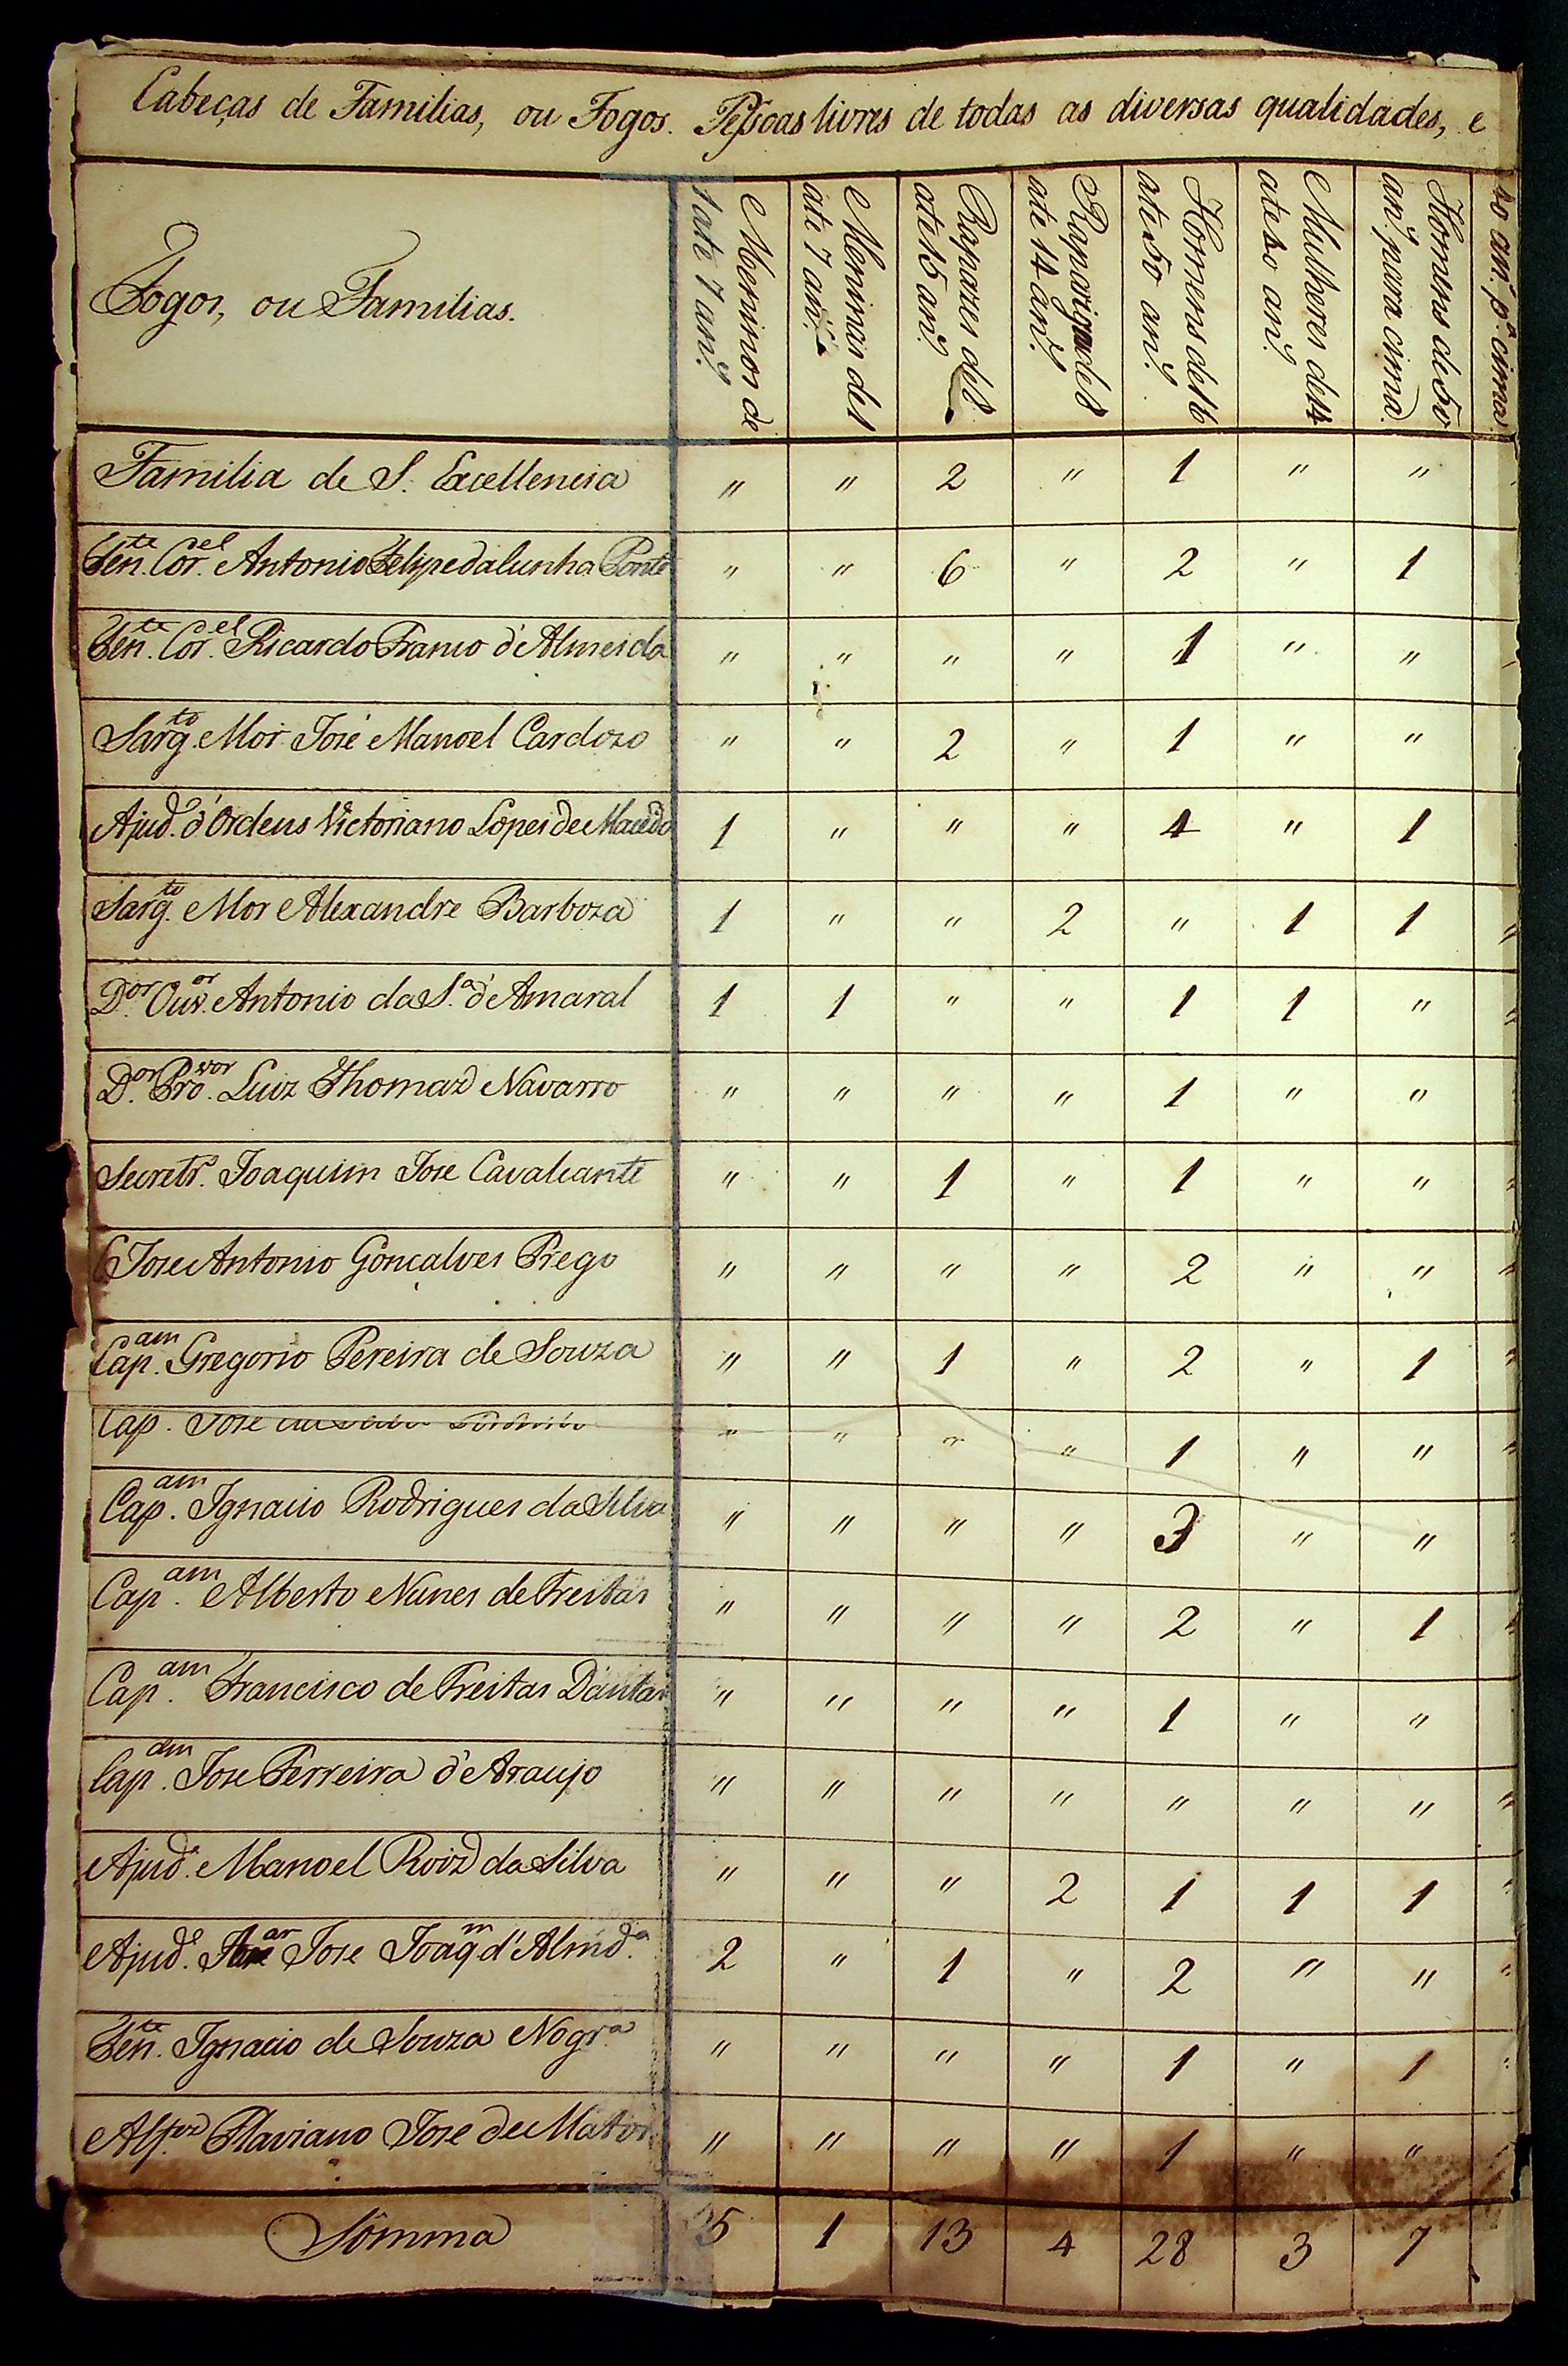 Cabeças de Familias, ou Fogos. Pessoas livres de todas as diversas qualidades, e
Fogos, ou Familias.
Meninos de
1 ate 7 an.s
Meninas de 1
ate 7 an.s
Rapazes de 8
ate 15 an.s
Raparigas de 8
ate 14 an.s
Homens de 16
ate 50 an.s
Mulheres de 14
ate 50 an.s
Homens de 50
an.s para cima
an.s p.a cima
Familia de S. Excellencia " " 2 " 1 " "
Ten.te Cor.el Antonio Felipe da Cunha Ponte " " 6 " 2 " 1
Ten.te Cor.el Ricardo Franco d'Almeida " " " " 1 " "
Sarg.to Mór José Manoel Cardozo " " 2 " 1 " "
Ajud.e d'Ordens Victoriano Lopes de Macedo 1 " " " 4 " 1
Sarg.to Mor Alexandre Barboza 1 " " 2 " 1 1 "
D.or Ouv.or Antonio da S.a d'Amaral 1 1 " " 1 1 " "
D.or Pro.vor Luiz Thomaz Navarro " " " " 1 " "
Secretr.o Joaquim Jose Cavalcante " " 1 " 1 " " "
Jose Antonio Goncalves Prego " " " " 2 " " "
Cap.am Gregorio Pereira de Souza " " 1 " 2 " 1 "
Cap. Jose " " " " 1 " " "
Cap.am Ignacio Rodrigues da Silva " " " " 3 " "
Cap.am Alberto Nunes de Freitas " " " " 2 " 1 "
Cap.am Francisco de Freitas Dantas " " " " 1 " "
Cap.am Jose Ferreira d'Araujo " " " " " " " "
Ajud.e Manoel Roiz da Silva " " " 2 1 1 1 "
Ajud.e Jose Joaq.m d'Almd.a 2 " 1 " 2 " " "
Ten.te Ignacio de Souza Nogr.a " " " " 1 " 1 "
Alf.ez Flaviano Jose de Matos " " " " 1 " "
Sômma 5 1 13 4 28 3 7